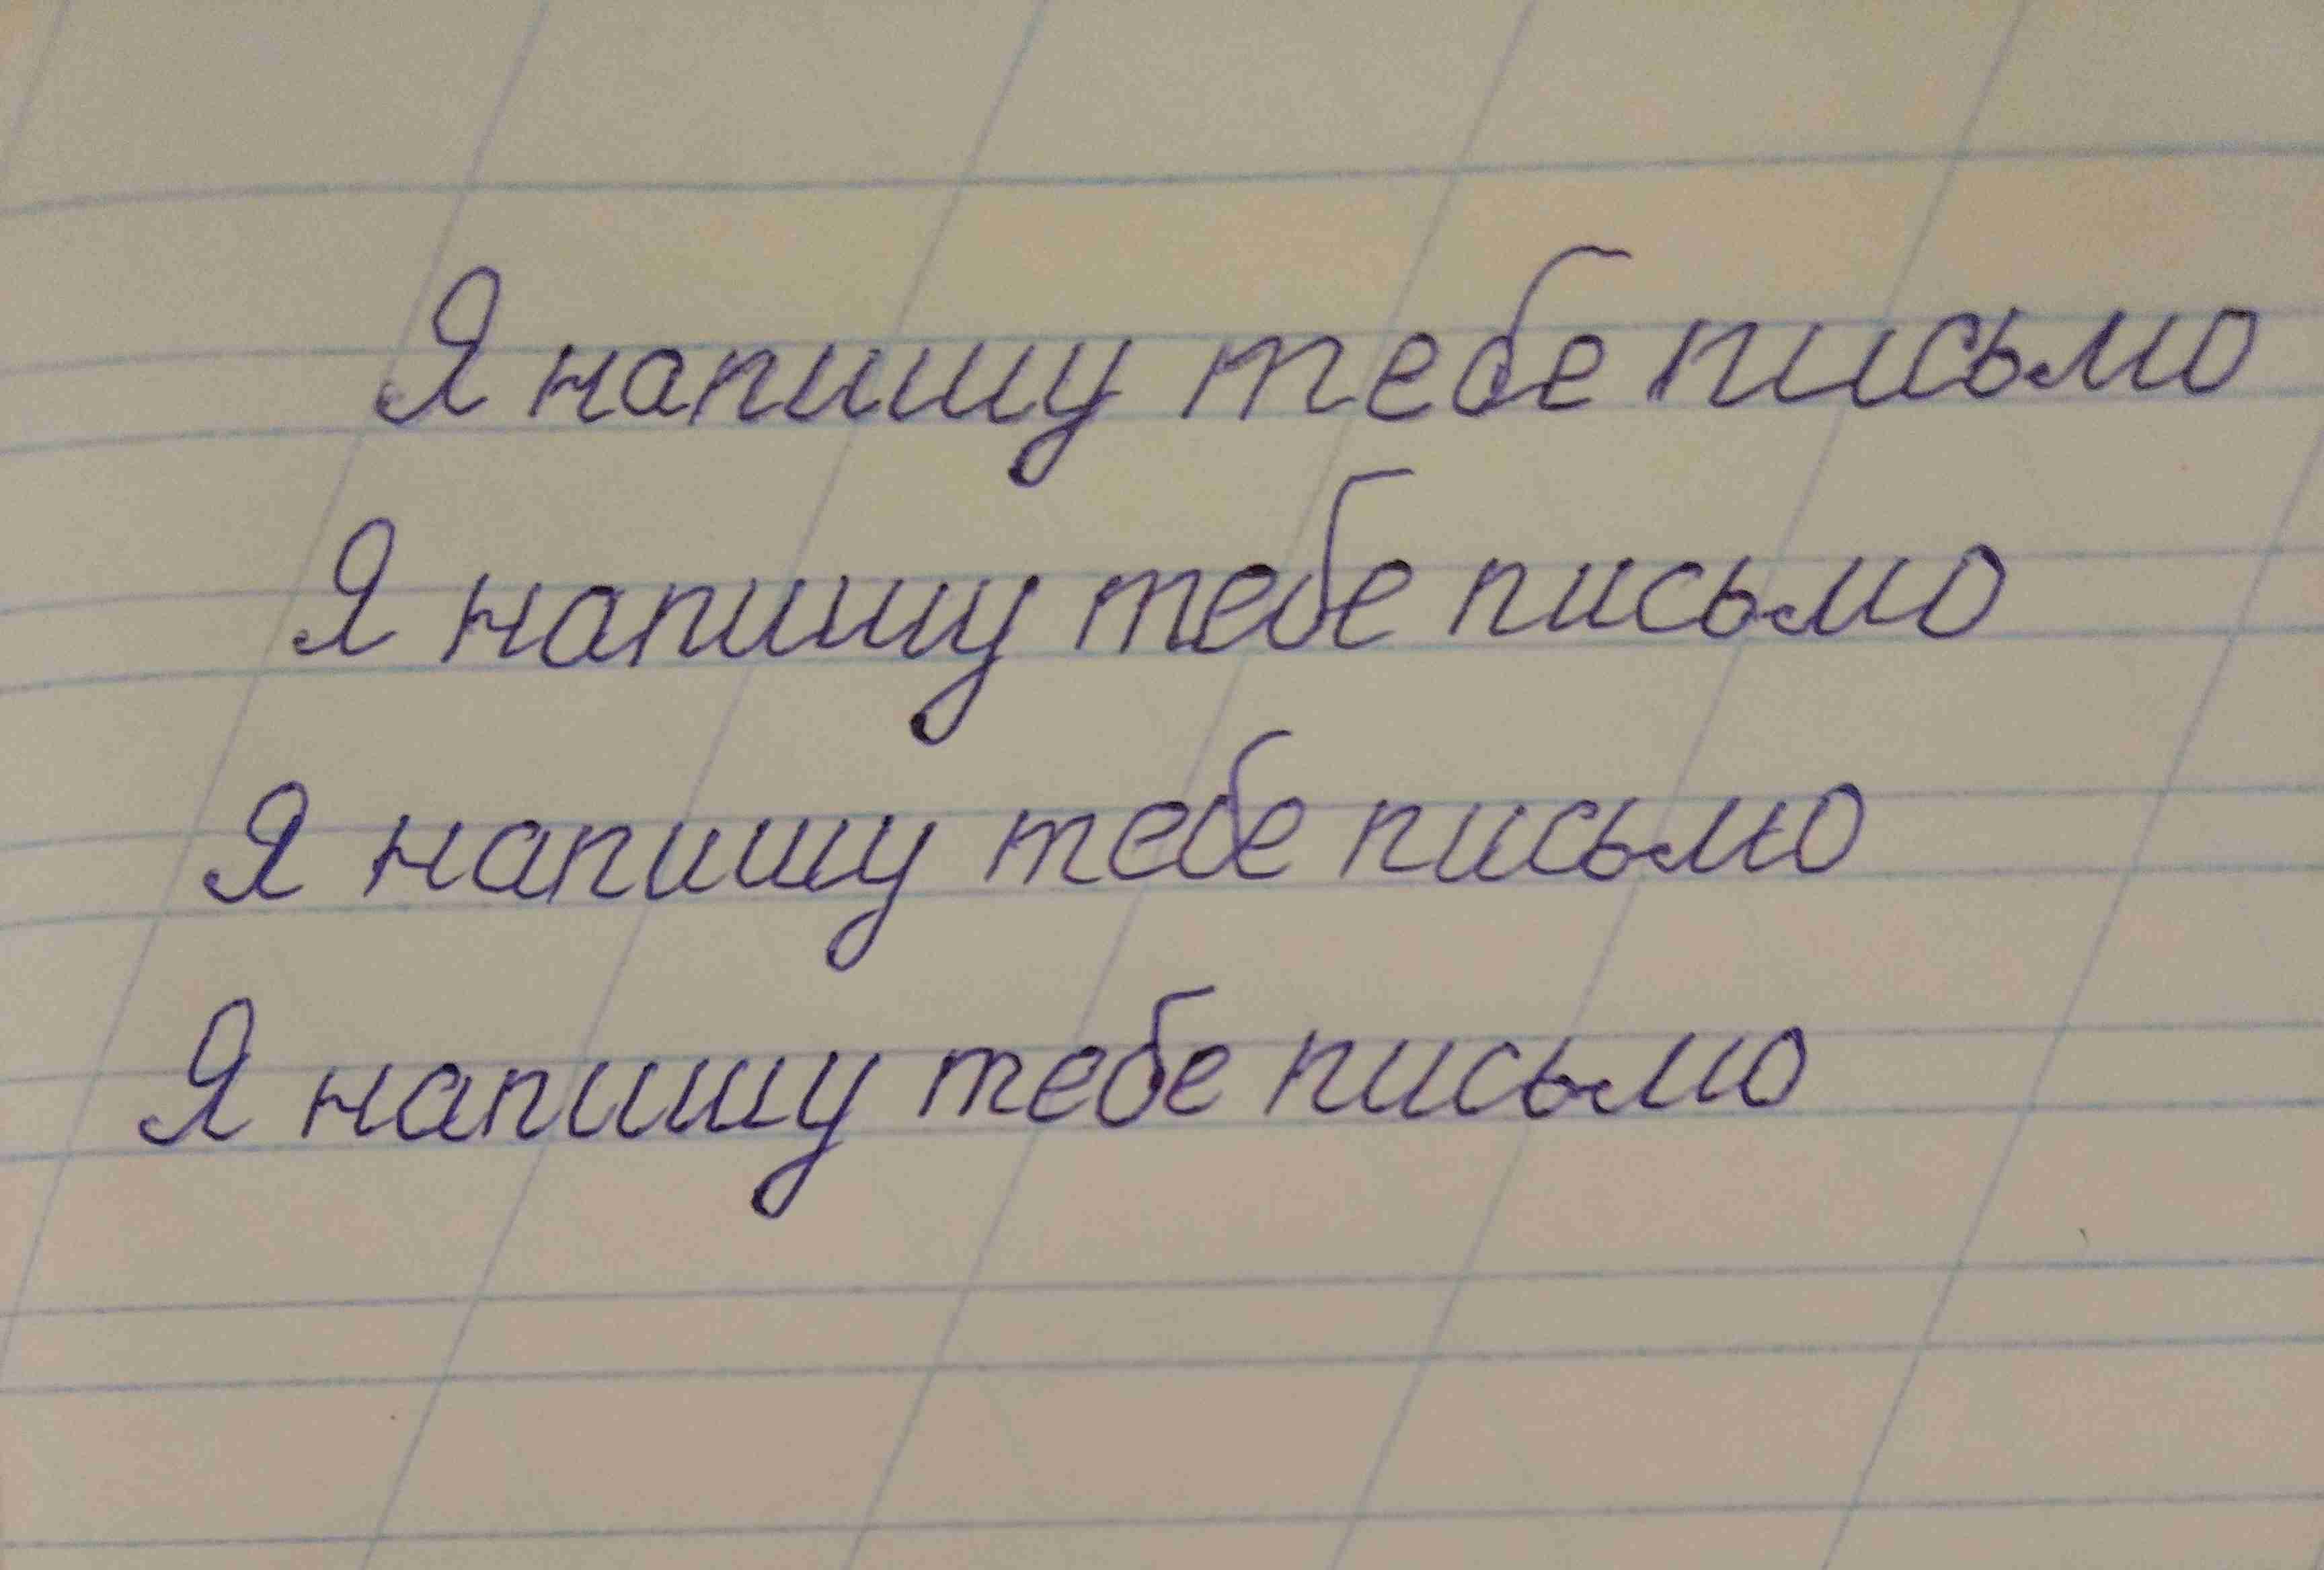 Я напишу тебе письмо
Я напишу тебе письмо
Я напишу тебе письмо
Я напишу тебе письмо